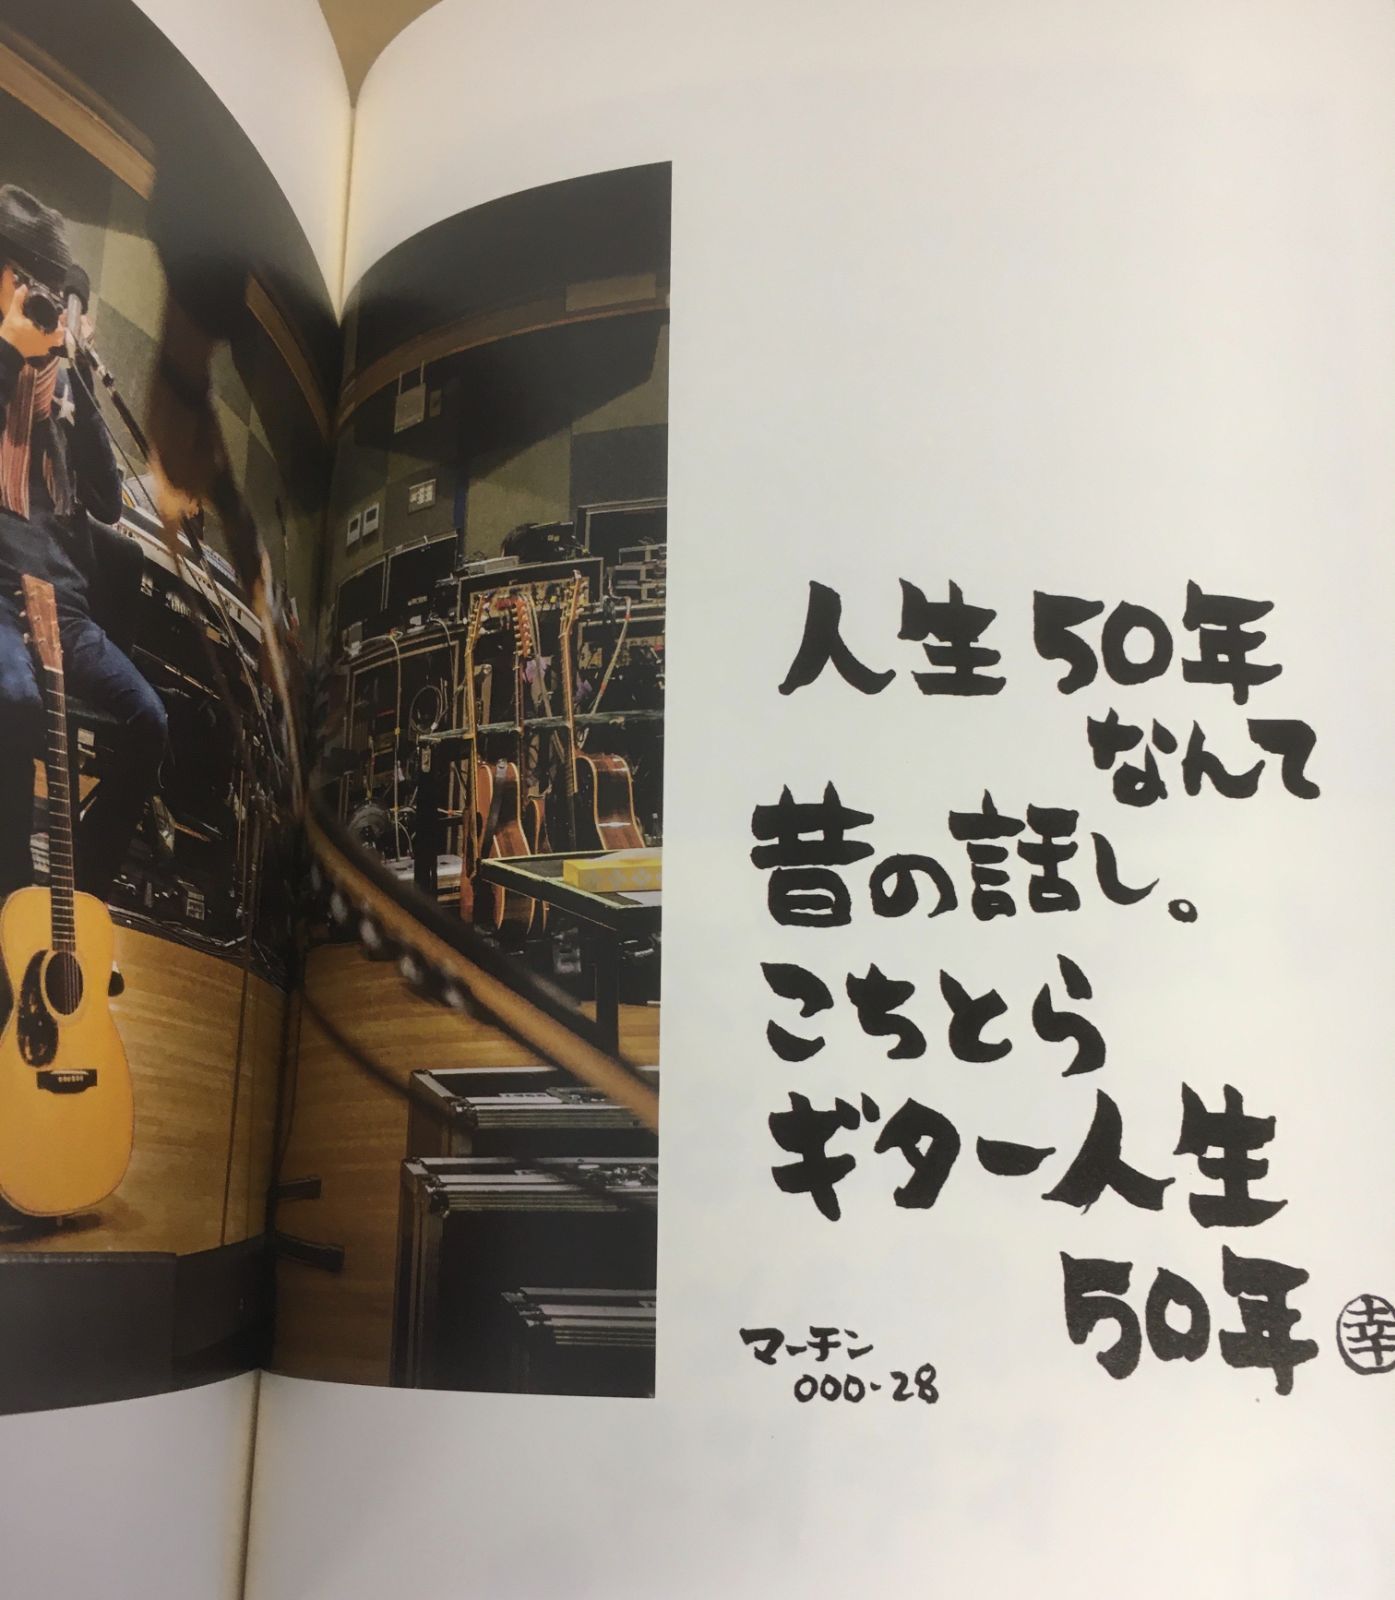 人生50年
なんて
昔の話し。
こちとら
ギター人生
50年
幸
マーチン
000-28